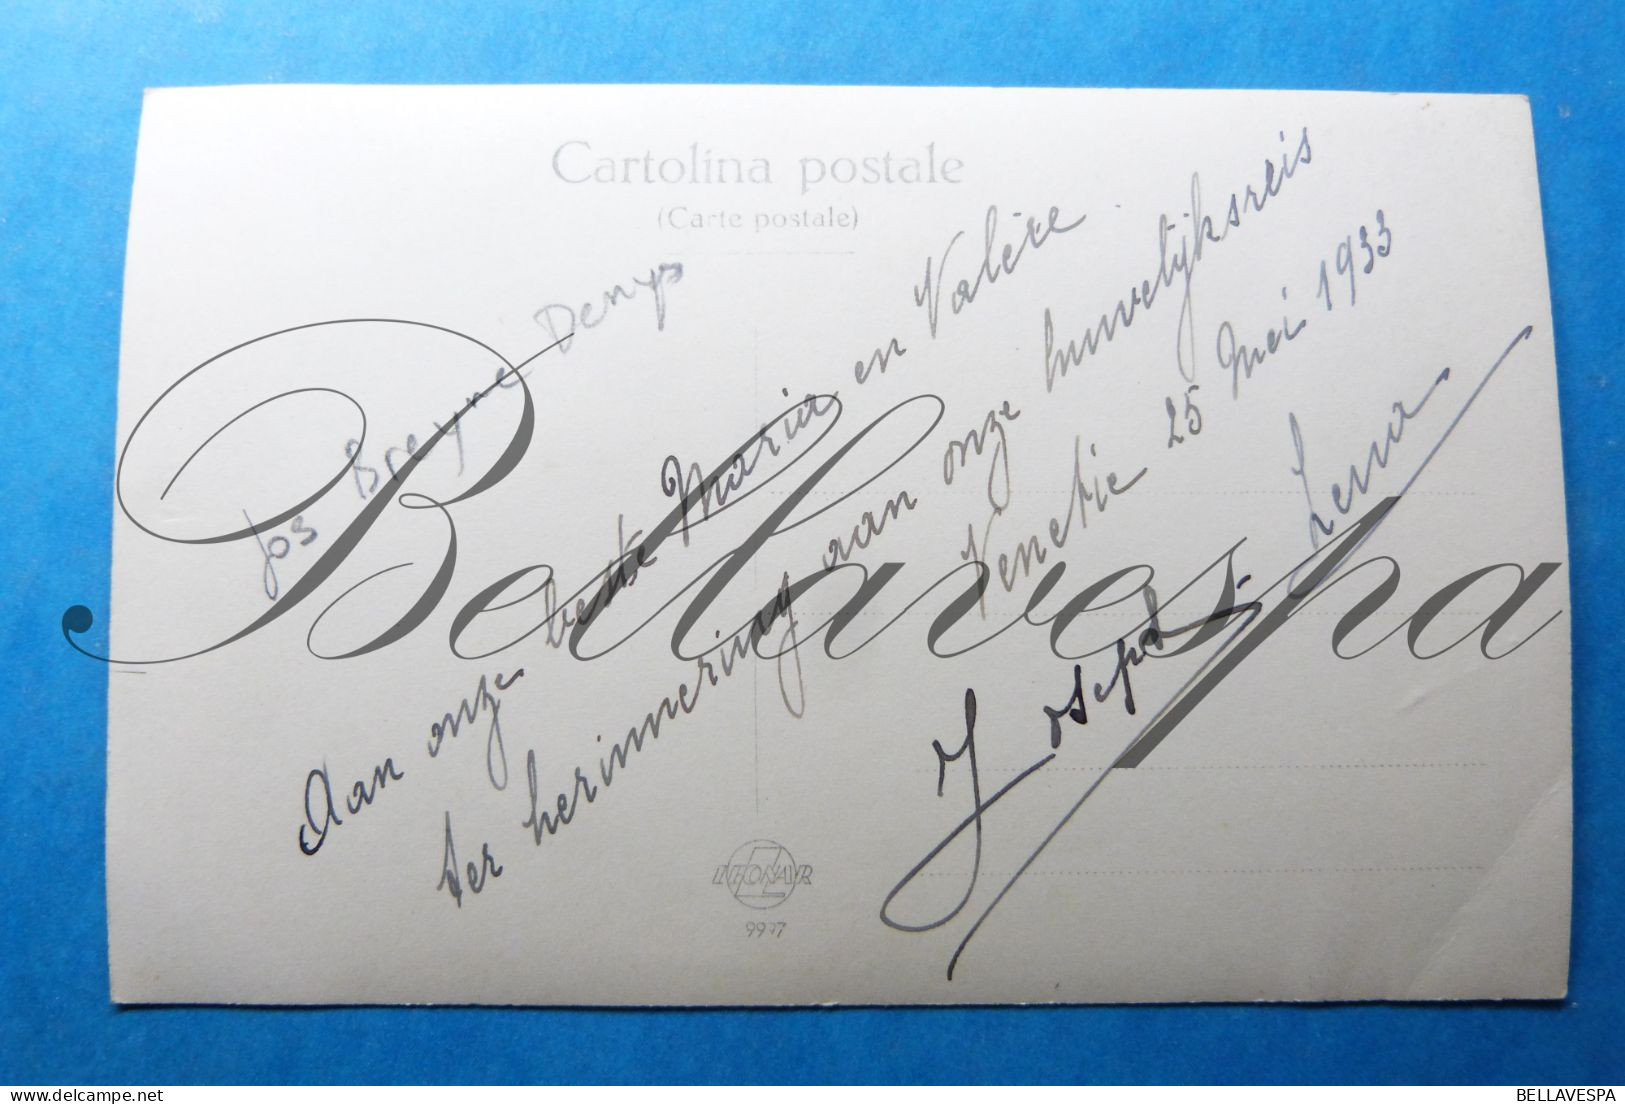 Cartolina postale
(Carte postale)
Jos Breyne Denys
Aan onze beste Maria en Valère
ter herinnering aan onze huwelijksreis
Venetie 25 Mei 1933
Joseph - Lena
LEONAR
Bellavespa
BELLAVESPA